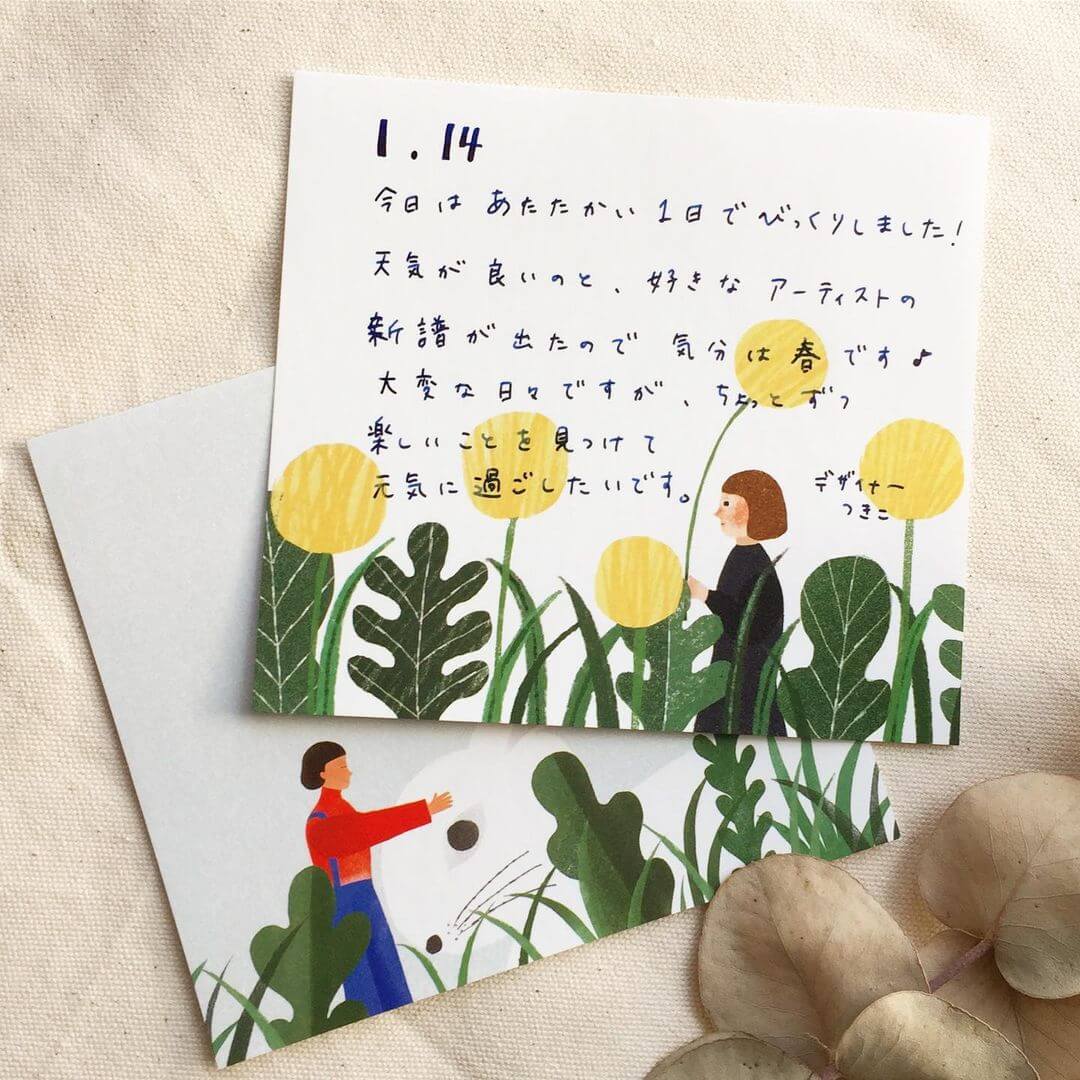 1.14
今日は あたたかい 1日で びっくりしました!
天気が 良いのと、好きな アーティストの
新譜が 出たので 気分は春です♪
大変な日々ですが、ちょっとずつ
楽しいことを見つけて
元気に過ごしたいです。
デザイナー
つきこ